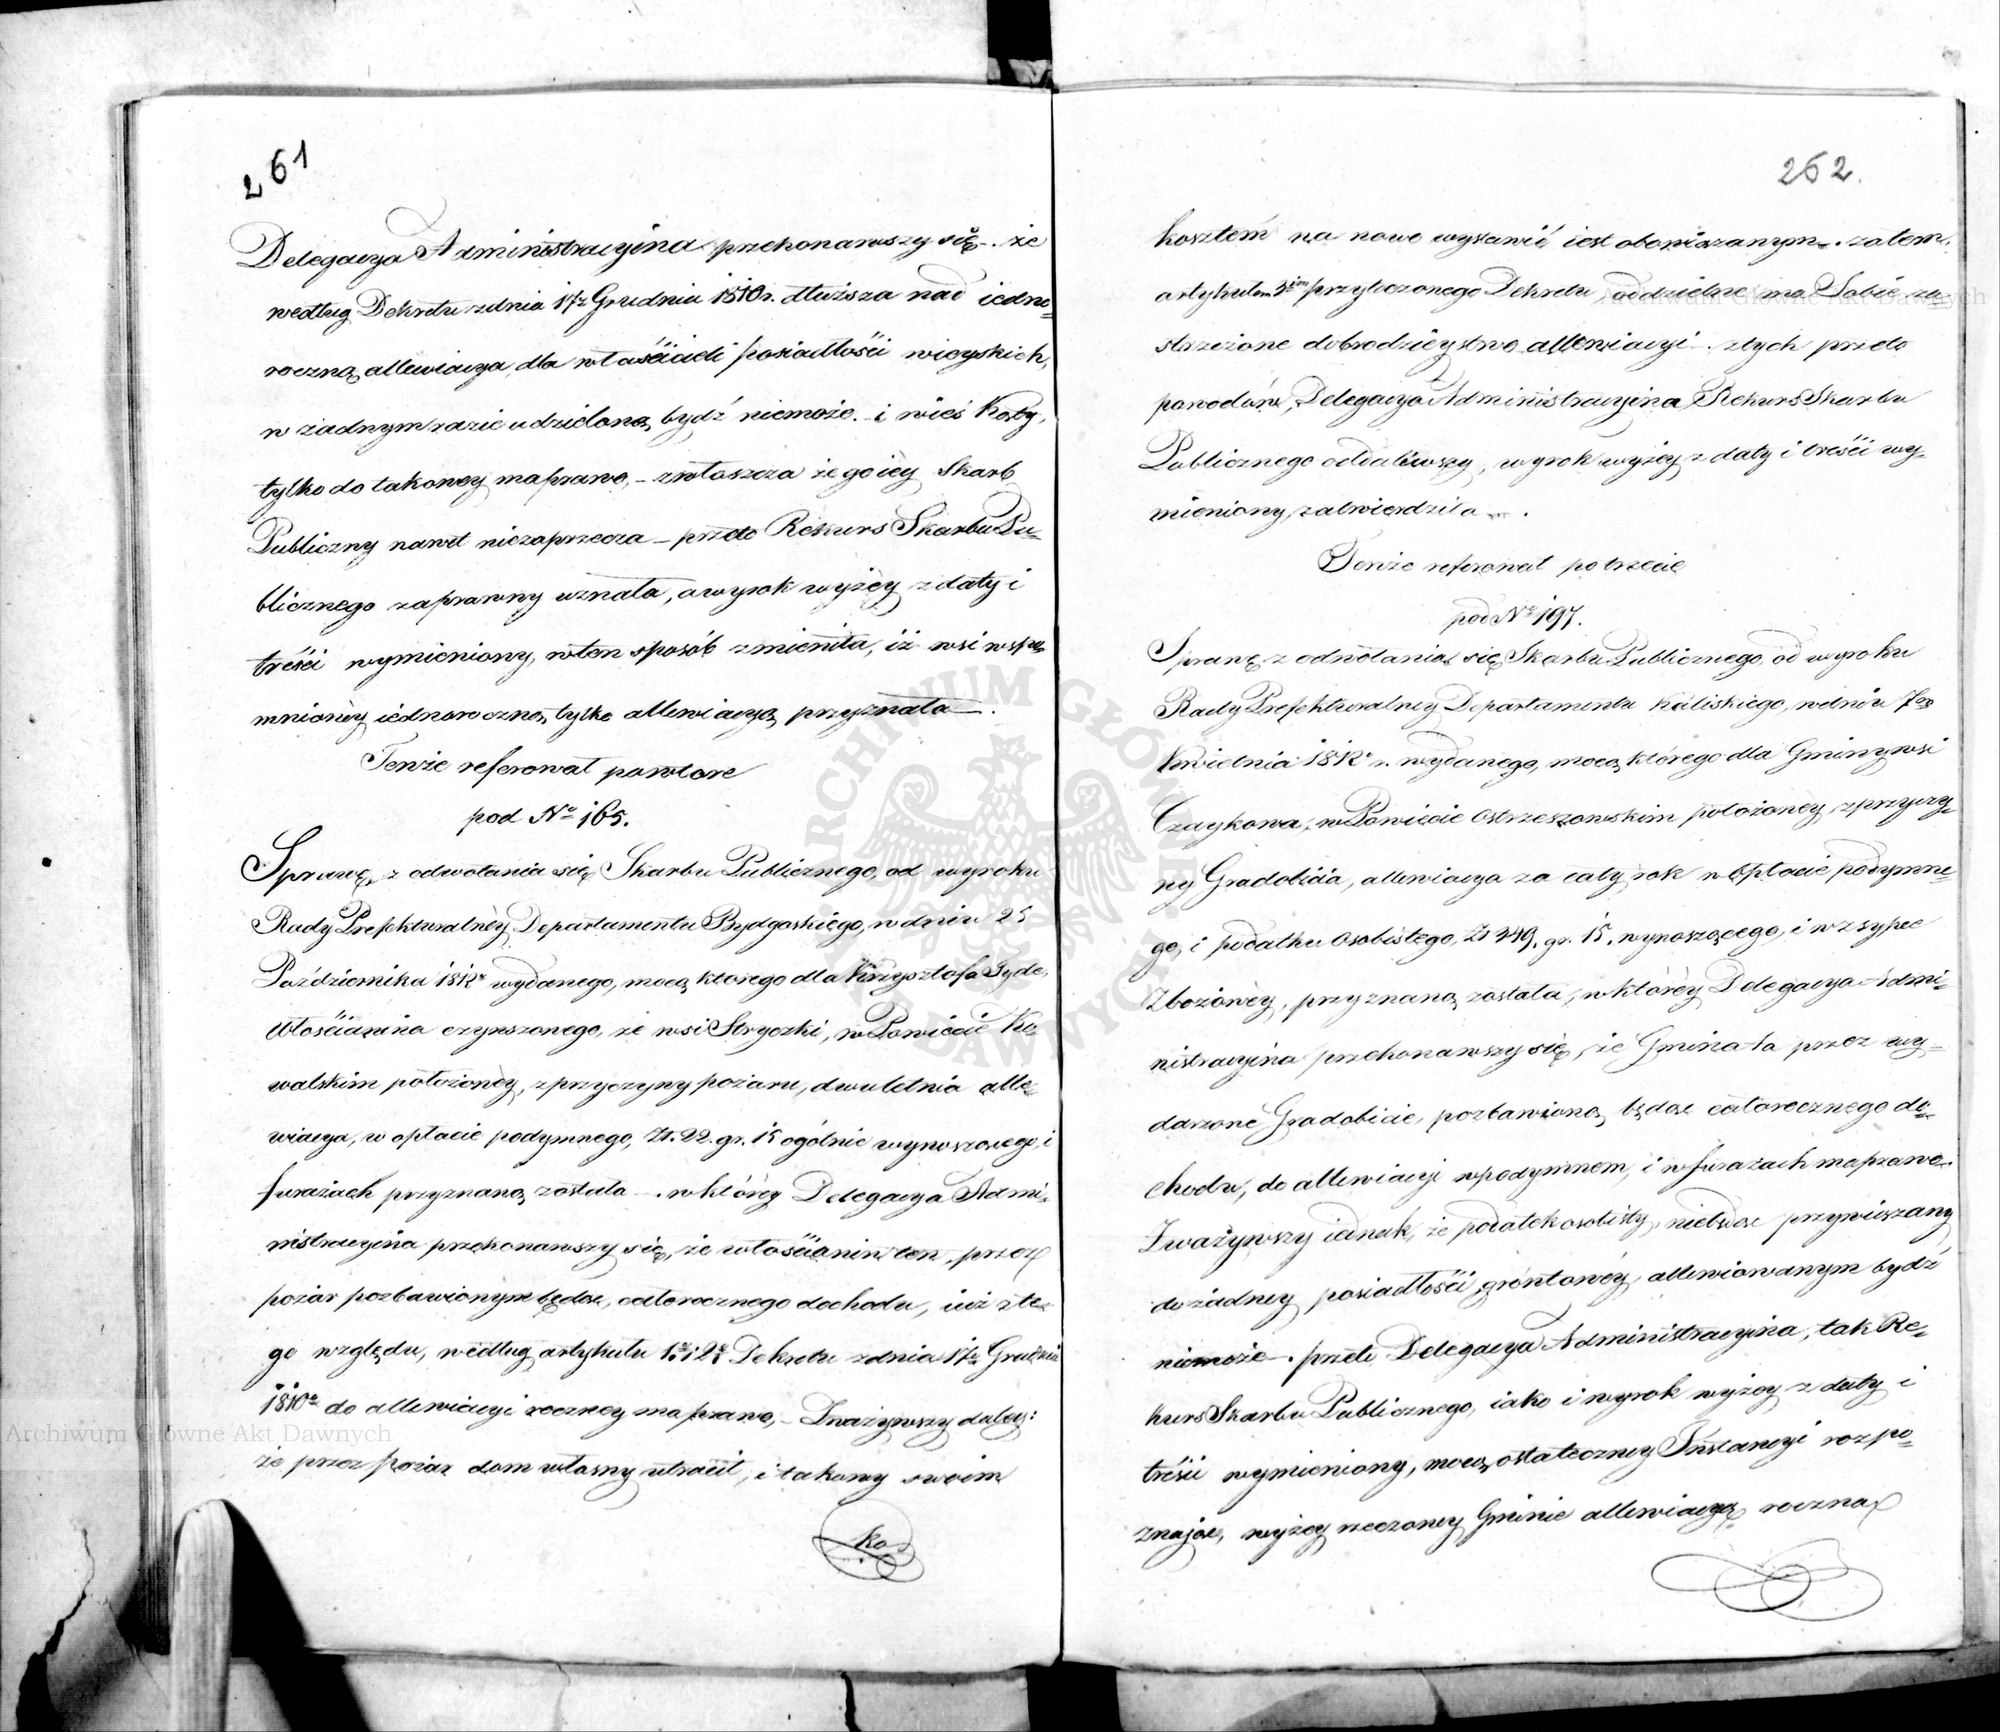 261
Delegacya Administracyina przekonawszy się – że
według Dekretu z dnia 17 Grudnia 1810 r. dłuższa nad iedno=
roczną allewiacya, dla właścicieli posiadłości wieyskich,
w żadnym razie udzieloną bydź niemoże. i wieś Koty,
tylko do takowey ma prawo, – zwłaszcza że go iéy Skarb
Publiczny nawet niezaprzecza – przeto Rekurs Skarbu Pu=
blicznego za prawny uznała, a wyrok wyżéy z daty i
treści wymieniony, w ten sposób zmieniła, iż wsi wspo=
mnionéy iednoroczną tylko allewiacyą przyznała –.
Tenże referował powtore
pod No 165.
Sprawę z odwołania się Skarbu Publicznego, od wyroku
Rady Prefekturalnéy Departamentu Bydgoskiego, w dniu 25
Października 1812 wydanego, mocą ktorego dla Krzysztofa Gyde,
Włościanina czynszonego, ze wsi Stryczki, w Powiecie Ko=
walskim położonéy, z przyczyny pożaru, dwuletnia alle=
wiacya, w opłacie podymnego, Zł. 22. gr. 15 ogólnie wynoszącego, i
furażach przyznaną została –. w któréy Delegacya Admi=
nistracyina przekonawszy się, że włościanin ten, przez
pożar pozbawionym będąc, całorocznego dochodu, iuż z te=
go względu, według artykułu 1. i 2. Dekretu z dnia 17 Grudnia
1810 do allewiacyi roczney ma prawo, – Zważywszy daley:
że przez pożar dom własny utracił, i takowy swoim
ko
262.
kosztem na nowo wystawić iest obowiązanym –. zatem.
artykułem 3im przytoczonego Dekretu oddzielne ma Sobie za=
strzeżone dobrodzieystwo allewiacyi –. z tych przeto
powodów, Delegacya Administracyina Rekurs Skarbu
Publicznego oddaliwszy, wyrok wyżey z daty i treści wy=
mieniony, zatwierdziła –.
Tenże referował po trzecie
pod No 197.
Sprawę z odwołania się Skarbu Publicznego, od wyroku
Rady Prefekturalney Departamentu Kaliskiego, w dniu 7go
Kwietnia 1812 r. wydanego, mocą którego dla Gminy wsi
Czaykowa, w Powiecie Ostrzeszowskim położoney, z przyczy=
ny Gradobicia, allewiacya za cały rok w opłacie podymne=
go, i podatku osobistego, Zł 449. gr. 15. wynoszącego, i w zsypce
Zbożowéy, przyznaną została, w któréy Delegacya Admi=
nistracyina przekonawszy się, że Gmina ta przez wy=
darzone Gradobicie, pozbawioną będąc całorocznego do=
chodu, do allewiacyi w podymnem, i w furażach ma prawo.
Zważywszy iednak, że podatek osobisty, niebędąc przywiązany
do żadney posiadłości gróntowéy, allewiowanym bydź
niemoże –. przeto Delegacya Administracyina, tak Re=
kurs Skarbu Publicznego, iako i wyrok wyżey z daty i
treści wymieniony, mocą ostateczney Instancyi rozpo=
znając, wyżey rzeczoney Gminie allewiacyą roczną